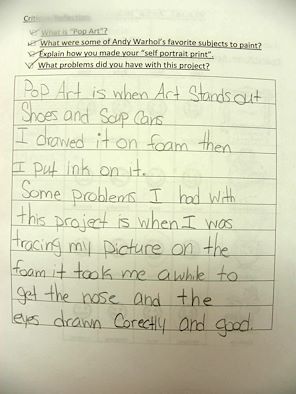 Critique/Reflection
What is "Pop Art"?
What were some of Andy Warhol's favorite subjects to paint?
Explain how you made your "self portrait print".
What problems did you have with this project?
Pop Art is when Art Stands out
Shoes and Soup Cans
I drawed it on foam then
I put ink on it.
Some problems I had with
this project is when I was
tracing my picture on the
foam it took me awhile to
get the nose and the
eyes drawn Corectly and good.